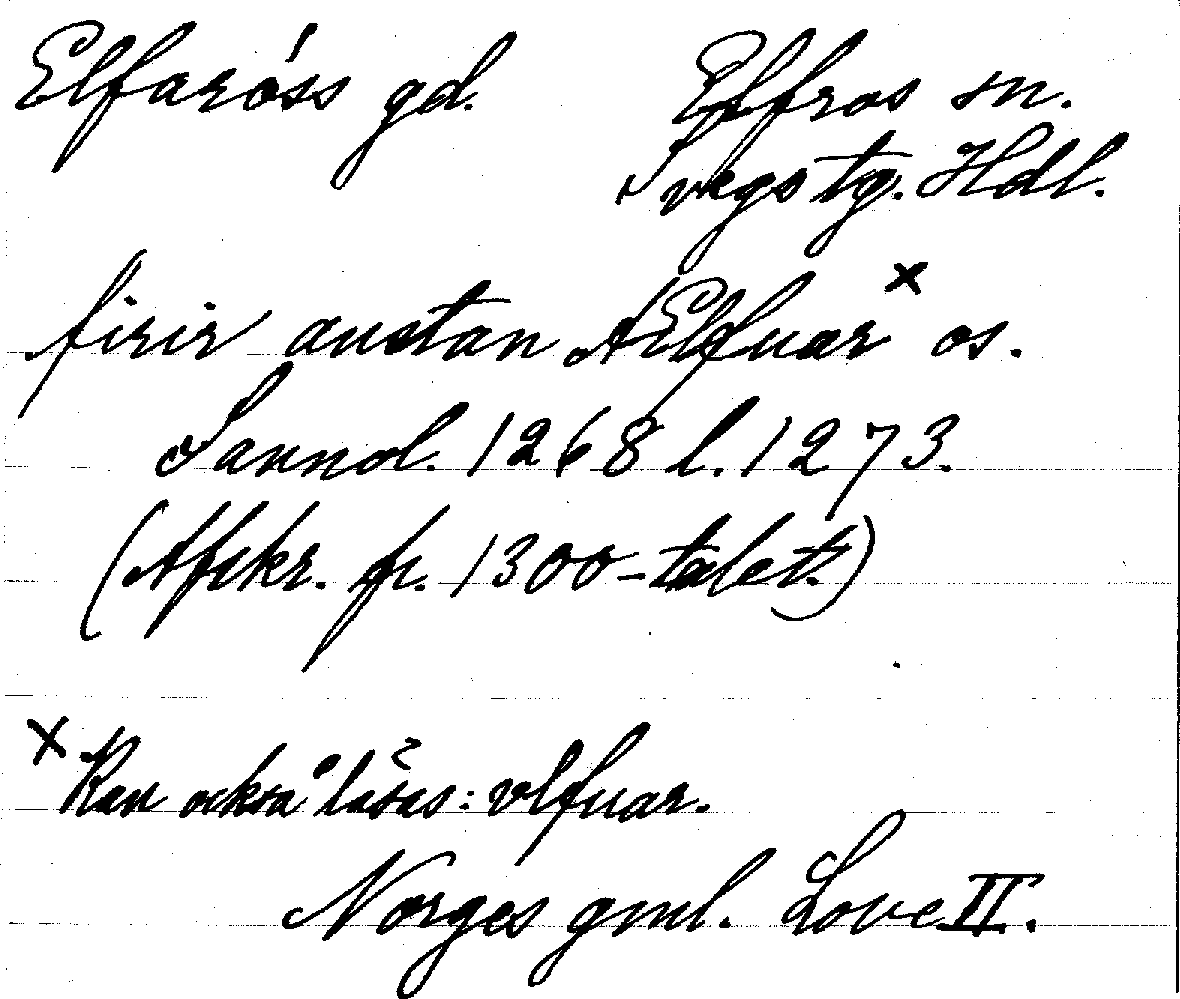 Elfaróss gd. Elfros sn.
Svegs tg. Hdl.
firir austan AElfuar x os.
Sannol. 1268 l. 1273.
(Afskr. fr. 1300-talet.)
x Kan också läsas: vlfuar.
Norges gml. Love II.